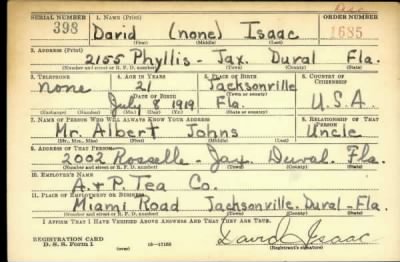 SERIAL NUMBER 1. NAME (Print) ORDER NUMBER
398 David (none) Isaac 1685
(First) (Middle) (Last)
2. ADDRESS (Print)
2155 Phyllis - Jax. Duval Fla.
(Number and street or R. F. D. number) (Town) (County) (State)
3. TELEPHONE 4. AGE IN YEARS 5. PLACE OF BIRTH 6. COUNTRY OF CITIZENSHIP
none 21 Jacksonville
(Town or county)
DATE OF BIRTH
July 8 1919 Fla. U.S.A.
(Exchange) (Number) (Mo.) (Day) (Yr.) (State or country)
7. NAME OF PERSON WHO WILL ALWAYS KNOW YOUR ADDRESS 8. RELATIONSHIP OF THAT PERSON
Mr. Albert Johns Uncle
(Mr., Mrs., Miss) (First) (Middle) (Last)
9. ADDRESS OF THAT PERSON
2002 Rosselle - Jax. Duval. Fla.
(Number and street or R. F. D. number) (Town) (County) (State)
10. EMPLOYER'S NAME
A. & P. Tea Co.
11. PLACE OF EMPLOYMENT OR BUSINESS
Miami Road Jacksonville. Duval - Fla.
(Number and street or R. F. D. number) (Town) (County) (State)
I AFFIRM THAT I HAVE VERIFIED ABOVE ANSWERS AND THAT THEY ARE TRUE.
REGISTRATION CARD David Isaac
D. S. S. Form 1 (over) 16—17105 (Registrant's signature)